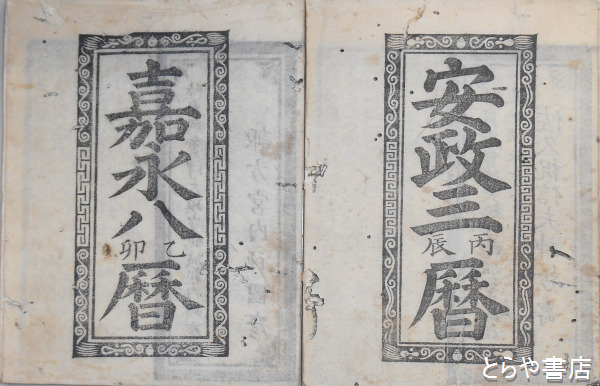 安政三
丙辰
暦
嘉永八
乙卯
暦
とらや書店